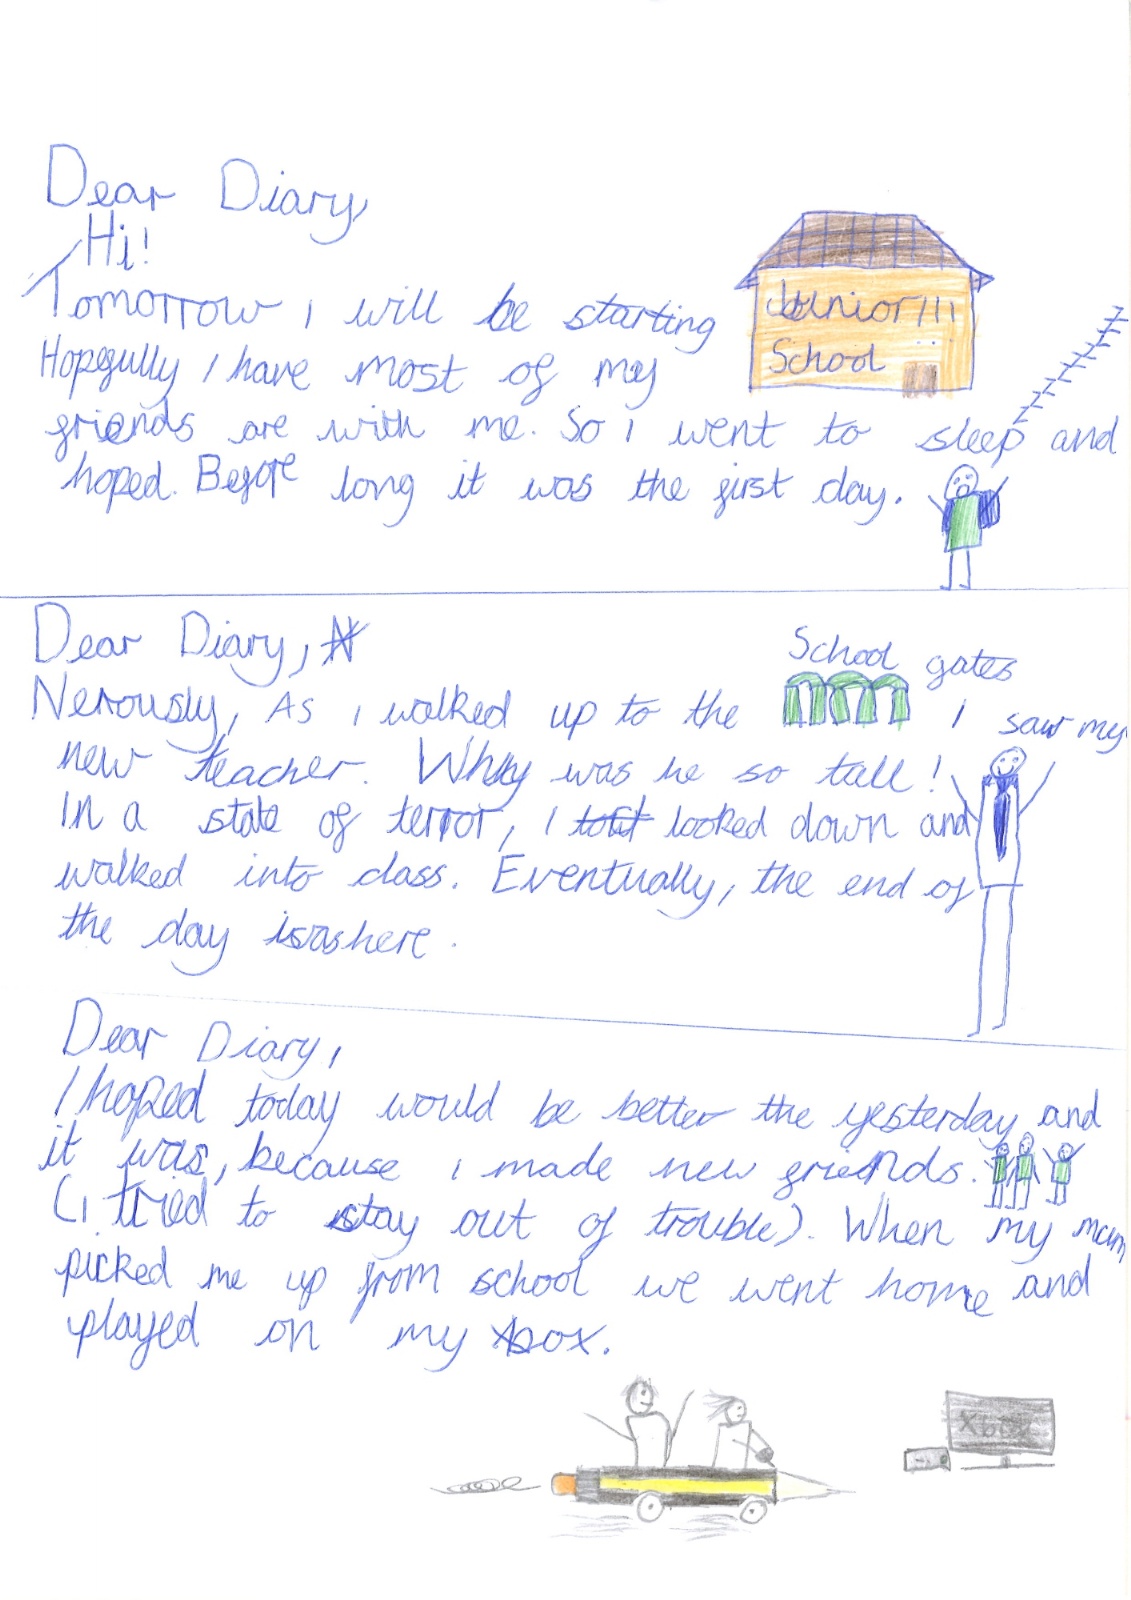 Dear Diary,
Hi!
Tomorrow I will be starting Junior!!!
School
Hopefully I have most of my
friends are with me. So I went to sleep and
hoped. Before long it was the first day.
Dear Diary,
School gates
Nerously, As I walked up to the I saw my
new teacher. Why was he so tall!
In a state of terror, I looked down and
walked into class. Eventually, the end of
the day was here.
Dear Diary,
I hoped today would be better the yesterday and
it was, because I made new friends.
(I tried to stay out of trouble). When my mum
picked me up from school we went home and
played on my xbox.
Xbox